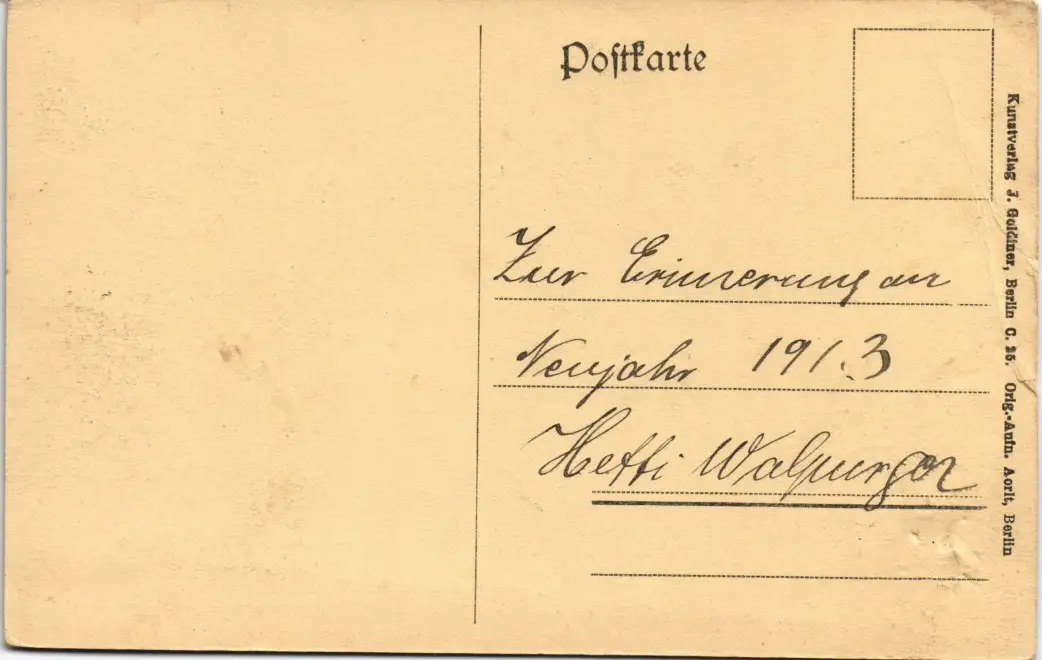 Postkarte
Zur Erinnerung an
Neujahr 1913
Hetti Walpurger
Kunstverlag J. Goldiner, Berlin C. 25. Orig.-Aufn. Aorit, Berlin